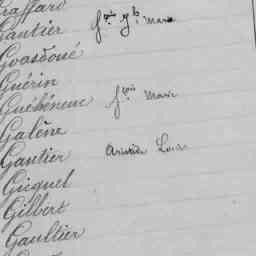 Gaffard
Gautier fçois Jh Marie
Goasdoué
Guérin
Guéhéneuc fçois Marie
Galêne
Gautier Aristide Louis
Gicquel
Gilbert
Gaultier